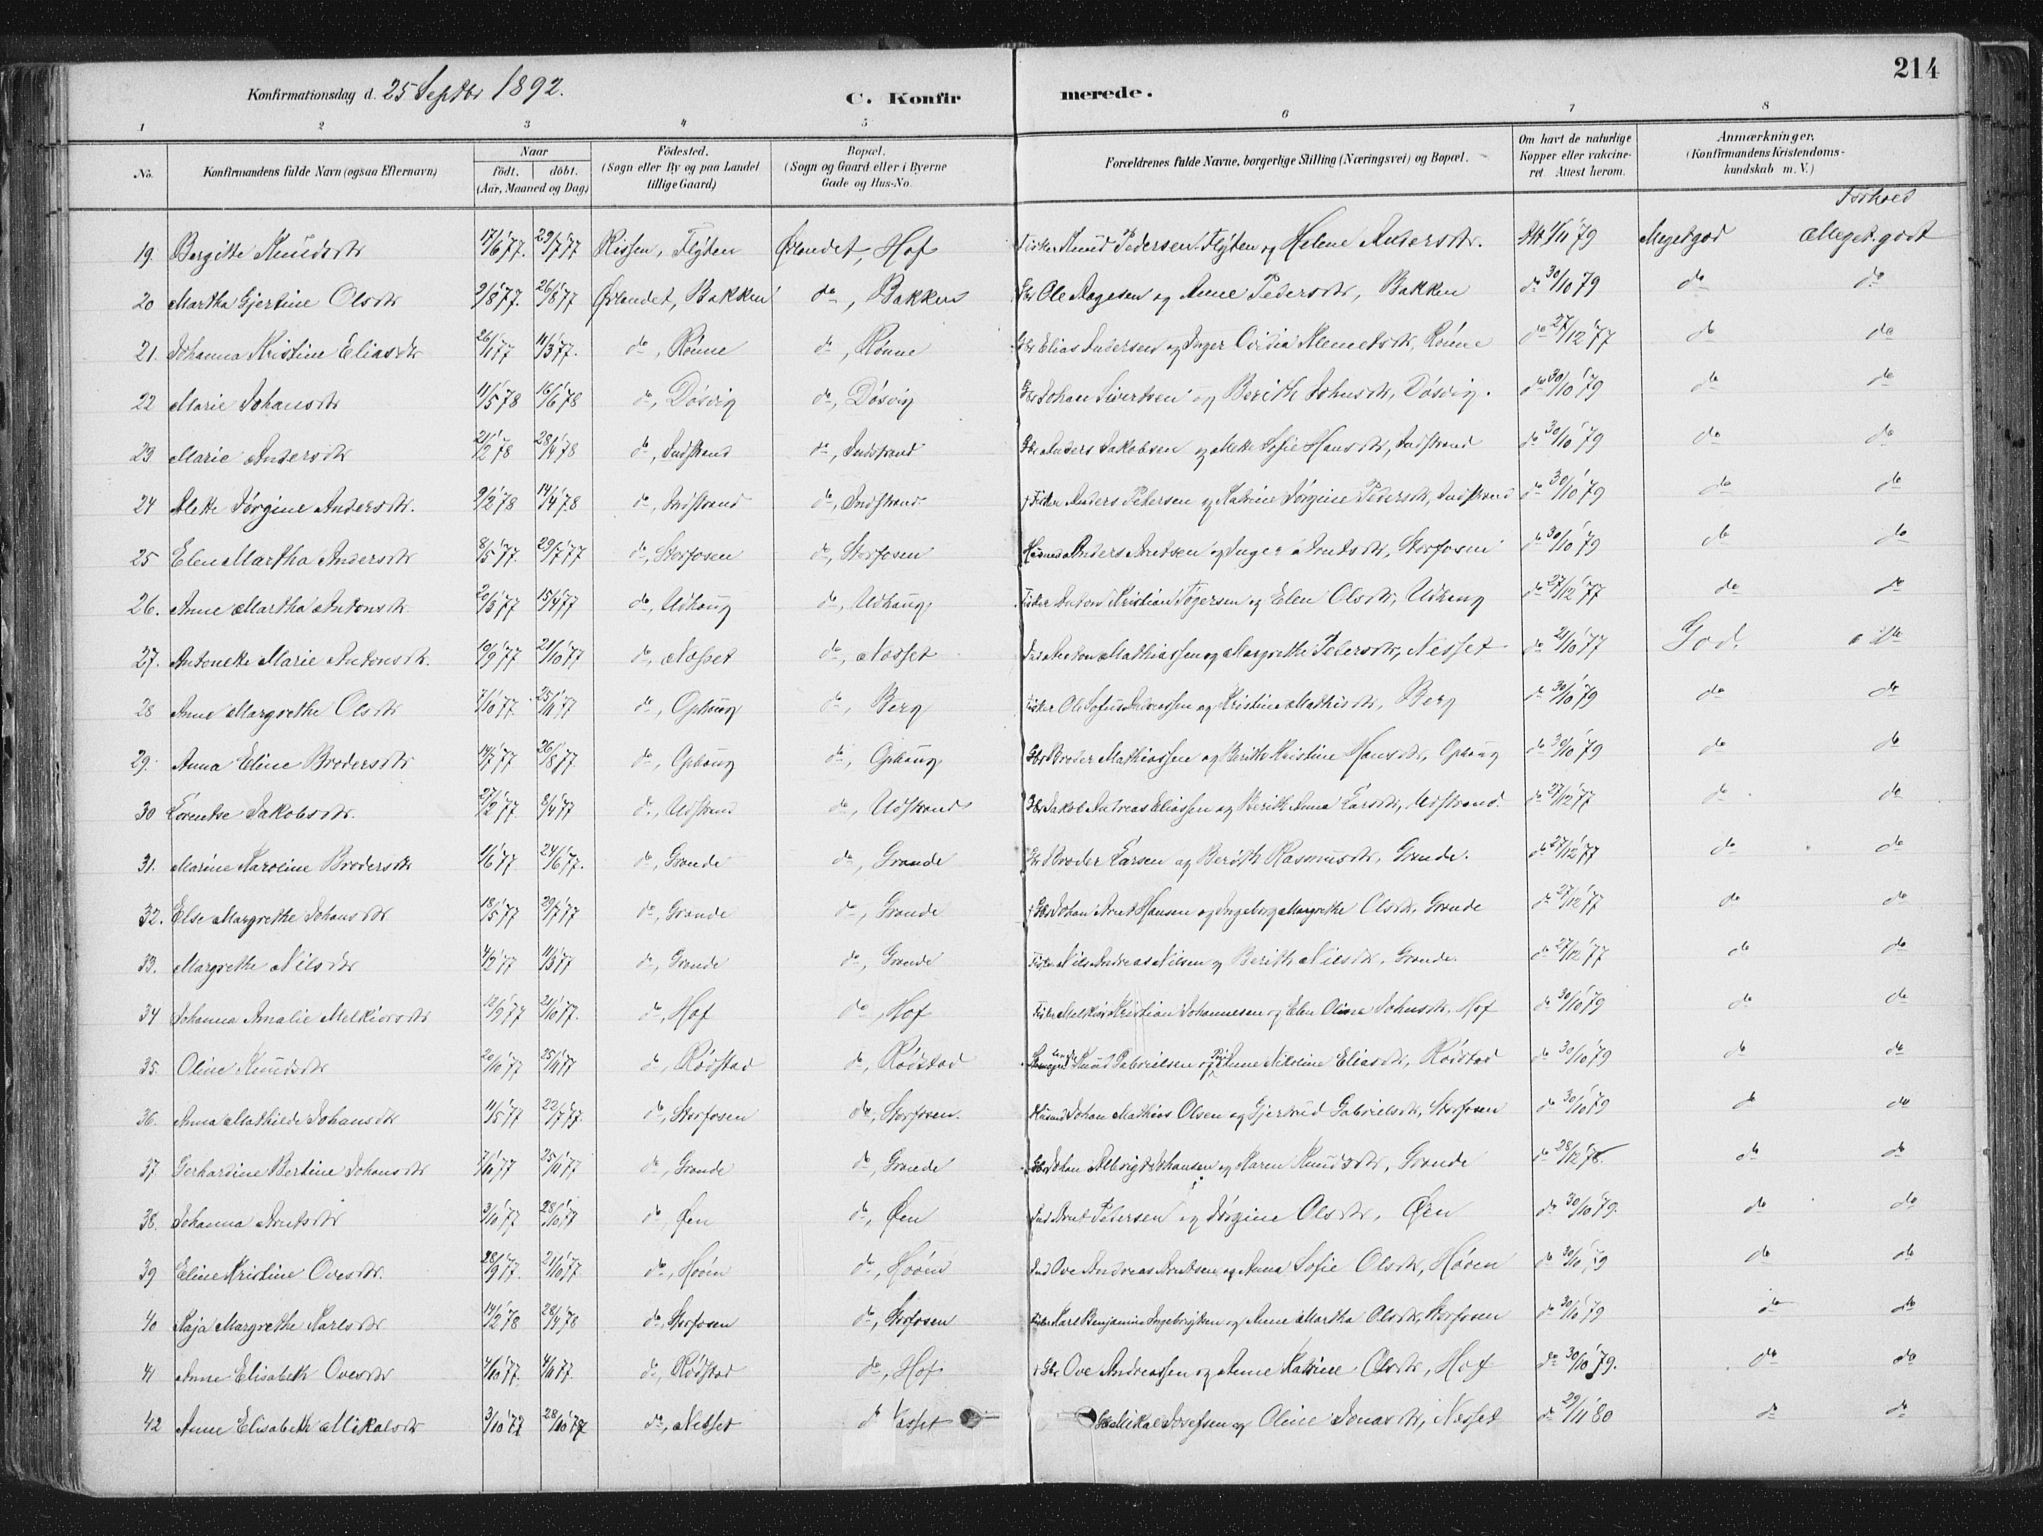 214
Konfirmationsdag d. 25 Septbr 1892. C. Konfir merede.
1 2 3 4 5 6 7 8
No. Konfirmandens fulde Navn (ogsaa Efternavn) Naar født. døbt. (Aar, Maaned og Dag) Fødested. (Sogn eller By og paa Landet tillige Gaard) Bopæl. (Sogn og Gaard eller i Byerne Gade og Hus-No. Forældrenes fulde Navne, borgerlige Stilling (Næringsvei) og Bopæl. Om havt de naturlige Kopper eller vakcineret. Attest herom. Anmærkninger. (Konfirmandens Kristendomskundskab m. V.)
Forhold
19. Bergitte Knudsdtr 17/6 77. 29/7 77 Rissen, Flyten Ørlandet, Hof Fisker Knud Pedersen Flyten og Helene Andersdtr. 79 Meget god Meget godt
20 Martha Gjertine Olsdtr 9/8 77. 26/8 77 Ørlandet, Bakken do, Bakken Gbr Ole Aagesen og Anne Pedersdtr, Bakken do 30/10 79 do do
21. Johanna Kristine Eliasdtr 26/1 77 11/3 77. do, Rønne do, Rønne Gbr Elias Andersen og Inger Klemetsdtr, Rønne do 27/12 77 do do
22 Marie Johansdtr 11/5 78 16/6 78 do, Døsvig do, Døsvig Gbr Johan Sivertsen og Berith Johnsdtr, Døsvig. do 30/10 79 do do
23 Marie Andersdtr 21/2 78 28/4 78 do, Indstrand do, Indstrand Gbr Anders Jakobsen og Mette Sofie Hansdtr, Indstrand do 30/10 79 do do
24 Alette Jørgine Andersdtr. 9/2 78 14/4 78 do, Indstrand do, Indstrand Fisker Anders Petersen og Katrine Jørgine Pedersdtr, Indstrand do 30/10 79 do do
25 Elen Martha Andersdtr 8/5 77. 29/7 77 do, Storfosen do, Storfosen Husmd Anders Arntsen og Inger Arntsdtr, Storfosen do 30/10 79 do do
26. Anne Martha Antonsdtr 20/3 77 15/4 77 do, Udhaug do, Udhaug. Fisker Anton Kristian Togersen og Elen Olsdtr, Udhaug do 27/12 77 do do
27. Antonette Marie Antonsdtr. 19/9 77 21/10 77 do, Nesset do, Nesset Anton Mathiassen og Margrethe Pedersdtr, Nesset do 21/10 77 God. do
28 Anne Margrethe Olsdtr 7/10 77. 25/11 77 do, Ophaug do, Berg Fisker Ole Sofus Andreassen og Kristine Mathisdtr, Berg do 30/10 79 do do
29. Anna Eline Brodersdtr 14/7 77 26/8 77. do, Ophaug do, Ophaug. Gbr Broder Mathiassen og Berith Kristine Hansdtr, Ophaug do 30/10 79 do do
30 Lorentse Jakobsdtr. 27/2 77. 2/4 77 do, Udstrand do, Udstrand Gbr Jakob Andreas Eliassen og Berith Anna Larsdtr, Udstrand. do 27/12 77 do do
31. Marine Karoline Brodersdtr 1/6 77 24/6 77. do, Grande do, Grande Gbr Broder Larsen og Berith Rasmusdtr, Grande. do 27/12 77 do do
32. Else Margrethe Johansdtr 18/5 77 29/7 77 do, Grande do, Grande Gbr Johan Arnt Hansen og Ingeborg Margrethe Olsdtr, Grande do 27/12 77 do do
33. Margrethe Nilsdtr 4/2 77 11/3 77 do, Grande do, Grande Fisker Nils Andreas Nilsen og Berith Nilsdtr, Grande. do 27/12 77 do do
34 Johanna Amalie Melkiorsdtr 12/9 77 21/10 77. do, Hof do, Hof Fisker Melkior Kristian Johannesen og Elen Oline Johnsdtr, Hof do 30/10 79 do do
35. Oline Knudsdtr 20/10 77 25/11 77 do, Rødstad do, Rødstad Knud Gabrielsen og Anne Nikoline Eliasdtr, Rødstad do 30/10 79 do do
36. Anna Mathilde Johansdtr 11/5 77 22/7 77. do, Storfosen do, Storfosen. Husmd Johan Mathias Olsen og Gjertrud Gabrielsdtr, Storfosen do 30/10 79 do do
37. Gerhardine Bertine Johansdtr 7/10 77 25/11 77 do, Grande do, Grande Gbr Johan Johansen og Karen Knudsdtr, Grande do 28/12 78. do do
38. Johanna Arntsdtr 3/10 77 28/10 77 do, Øen do, Øen Ind Arnt Petersen og Jørgine Olsdtr, Øen do 30/10 79. do do
39 Eline Kristine Ovesdtr. 28/9 77. 21/10 77. do, Høven do, Høven Ind Ove Andreas Arntsen og Anna Sofie Olsdtr, Høven do 30/10 79 do do
40 Kaja Margrethe Karlsdtr 14/2 78 28/4 78 do, Storfosen do, Storfosen Fisker Karl Benjamin Ingebrigtsen og Anne Martha Olsdtr, Storfosen do 30/10 79 do do
41 Anne Elisabeth Ovesdtr 4/10 77. 4/11 77. do, Rødstad do, Hof Gbr Ove Andreassen og Anne Katrine Olsdtr, Hof do 30/10 79. do do
42 Anne Elisabeth Mikalsdtr 3/10 77 28/10 77 do, Nesset do Nesset Gbr Mikal Josefsen og Oline Jonasdtr, Nesset do 29/11 80 do do